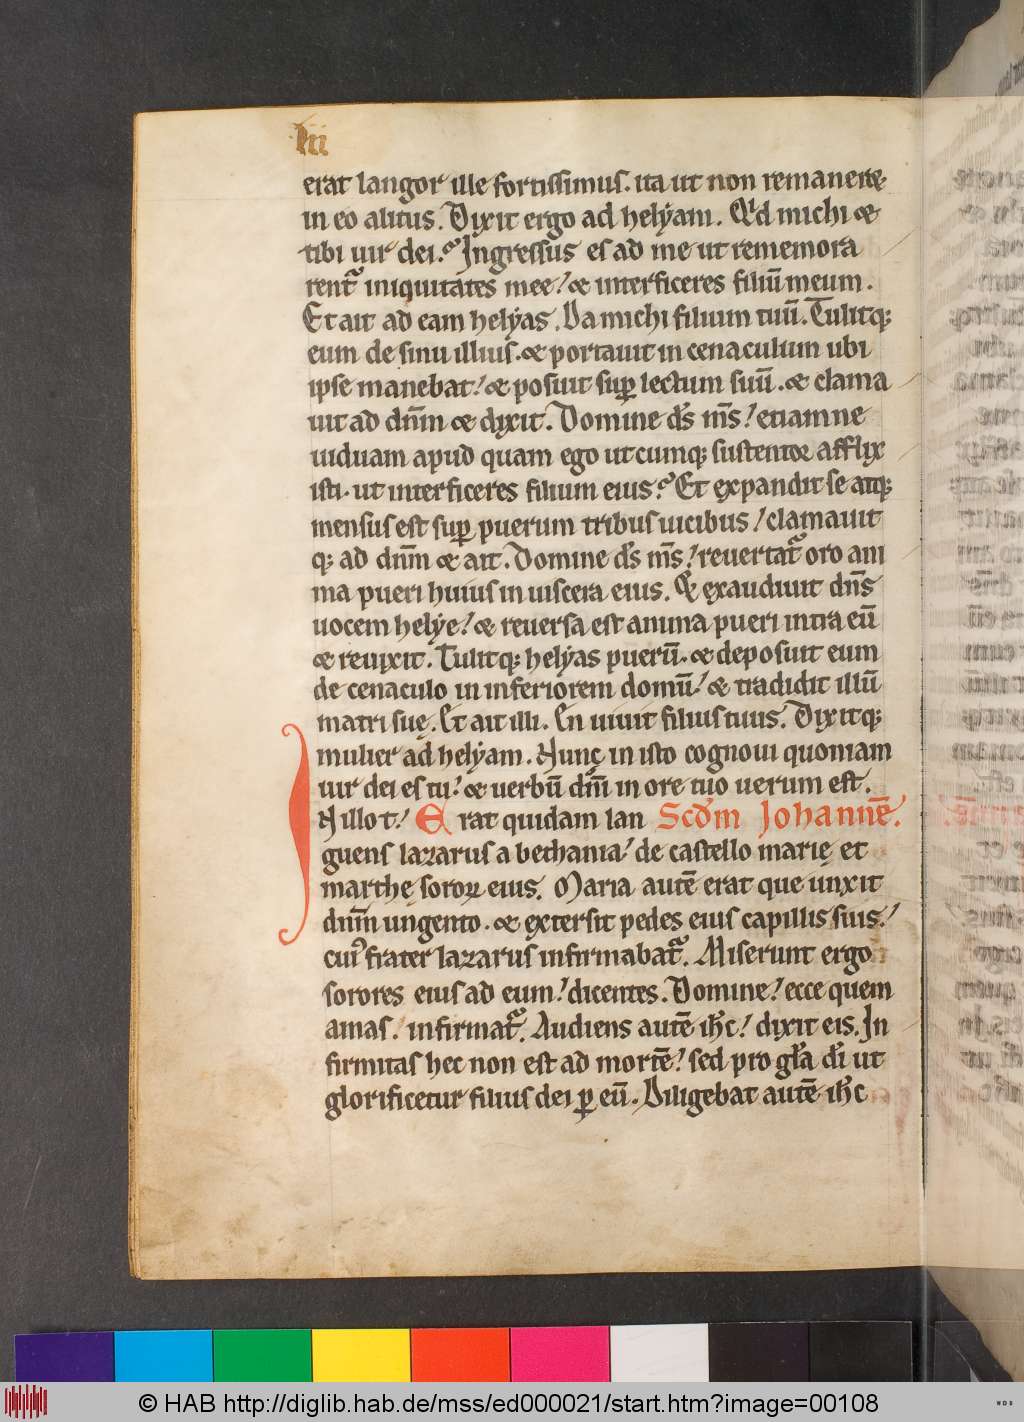 lii
erat langor ille fortissimus. ita ut non remaneret
in eo alitus. Dixit ergo ad helyam. Qͥd michi &
tibi uir dei.? Ingressus es ad me ut rememora
rent᷑ iniquitates mee! & interficeres filiū meum.
Et ait ad eam helyas. Da michi filium tuū. Tulitq;
eum de sinu illius. & portauit in cenaculum ubi
ipse manebat! & posuit suꝑ lectum suū. & clama
uit ad dn̄m & dixit. Domine ds̄ ms̄! etiam ne
uiduam apud quam ego utcumq; sustentor afflix
isti. ut interficeres filium eius.? Et expandit se atq;
mensus est suꝑ puerum tribus uicibus! clamauit
q; ad dn̄m & ait. Domine ds̄ ms̄! reuertat᷑ oro ani
ma pueri huius in uiscera eius. & exaudiuit dn̄s
uocem helye! & reuersa est anima pueri intra eū
& reuixit. Tulitq; helyas puerū. & deposuit eum
de cenaculo in inferiorem domū! & tradidit illū
matri suę. Et ait illi. En uiuit filius tuus. Dixitq;
mulier ad helyam. Nunc in isto cognoui quoniam
uir dei es tu! & uerbū dn̄i in ore tuo uerum est.
IN illo t! Erat quidam lan Scdm Johannē.
guens lazarus a bethania! de castello marię et
marthę soroꝝ eius. Maria autē erat que unxit
dn̄m ungento. & extersit pedes eius capillis suis!
cuiꝰ frater lazarus infirmabat᷑. Miserunt ergo
sorores eius ad eum! dicentes. Domine! ecce quem
amas! infirmat᷑. Audiens autē ih̄c! dixit eis. In
firmitas hec non est ad mortē! sed pro gl̄a dī ut
glorificetur filius dei ꝑ eū. Diligebat autē ih̄c
© HAB http://diglib.hab.de/mss/ed000021/start.htm?image=00108